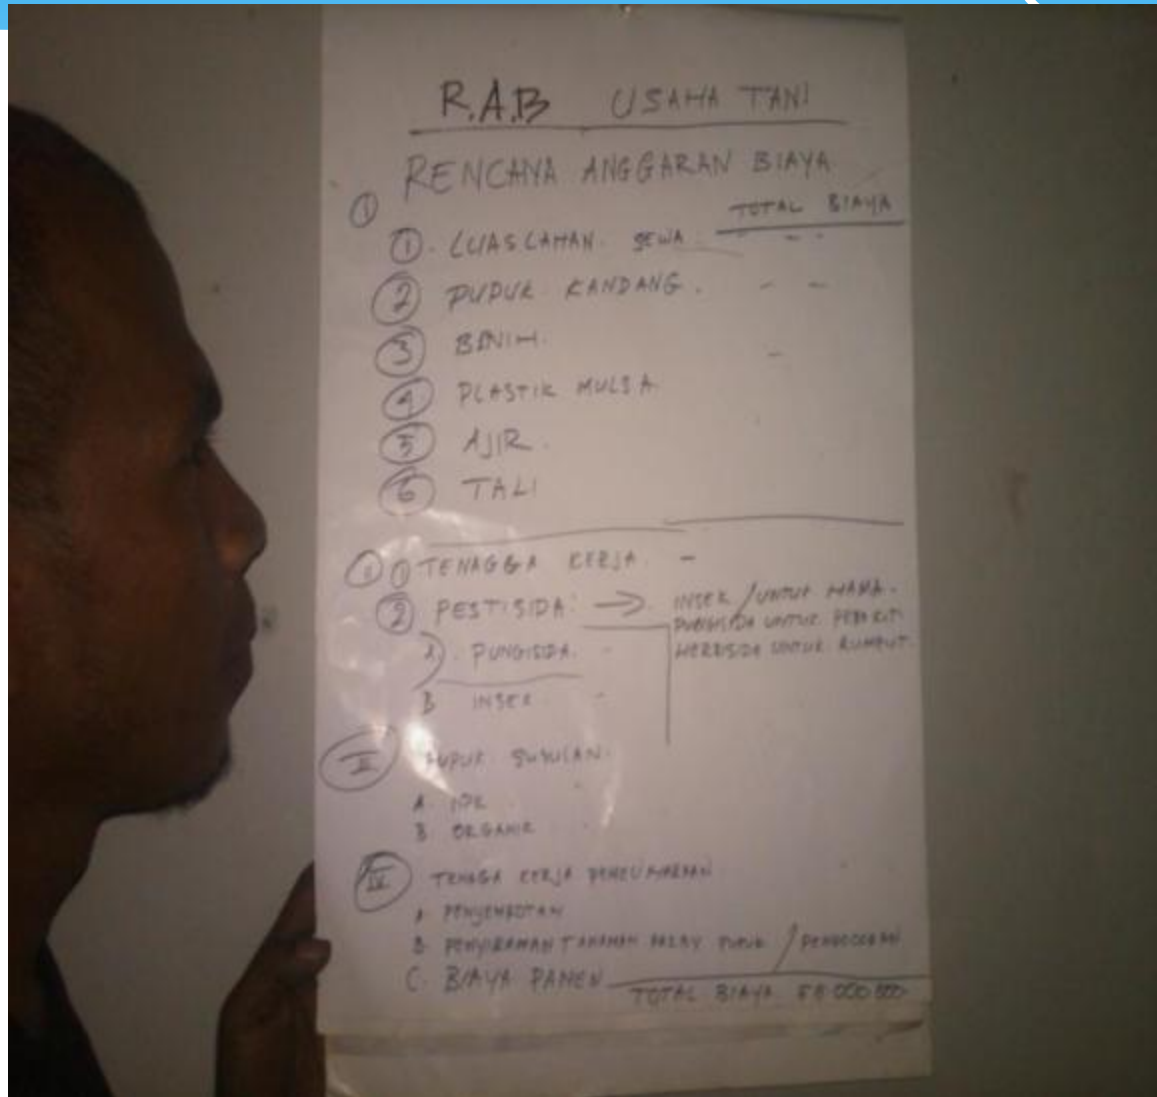 R.A.B USAHA TANI
RENCANA ANGGARAN BIAYA
I TOTAL BIAYA
1. LUAS LAHAN. SEWA - - -
2 PUPUK KANDANG. - -
3 BENIH. -
4 PLASTIK MULSA.
5 AJIR.
6 TALI
II 1 TENAGGA KERJA. -
2 PESTISIDA: → INSEK / UNTUK HAMA.
PUNGISIDA UNTUK
HERBISIDA UNTUK RUMPUT.
A. PUNGISIDA. -
B INSEK -
III PUPUK SUSULAN.
A. NPK
B ORGANIK
IV TENAGA KERJA PEMELIHARAAN
A. PENYEMROTAN
B. PENYIRAMAN TANAMAN PUPUK / PENGOCORAN
C. BIAYA PANEN
TOTAL BIAYA